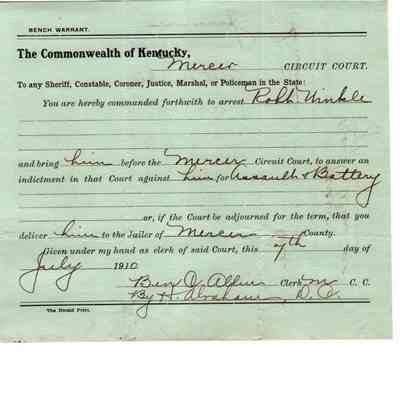 BENCH WARRANT.
The Commonwealth of Kentucky,
Mercer CIRCUIT COURT.
To any Sheriff, Constable, Coroner, Justice, Marshal, or Policeman in the State:
You are hereby commanded forthwith to arrest Robt. Winkle
and bring him before the Mercer Circuit Court, to answer an
indictment in that Court against him for Assault & Battery
or, if the Court be adjourned for the term, that you
deliver him to the Jailer of Mercer County.
Given under my hand as clerk of said Court, this 7th day of
July 1910
Ben Clerk M C. C.
By H. Abraham, D. C.
The Herald Print.